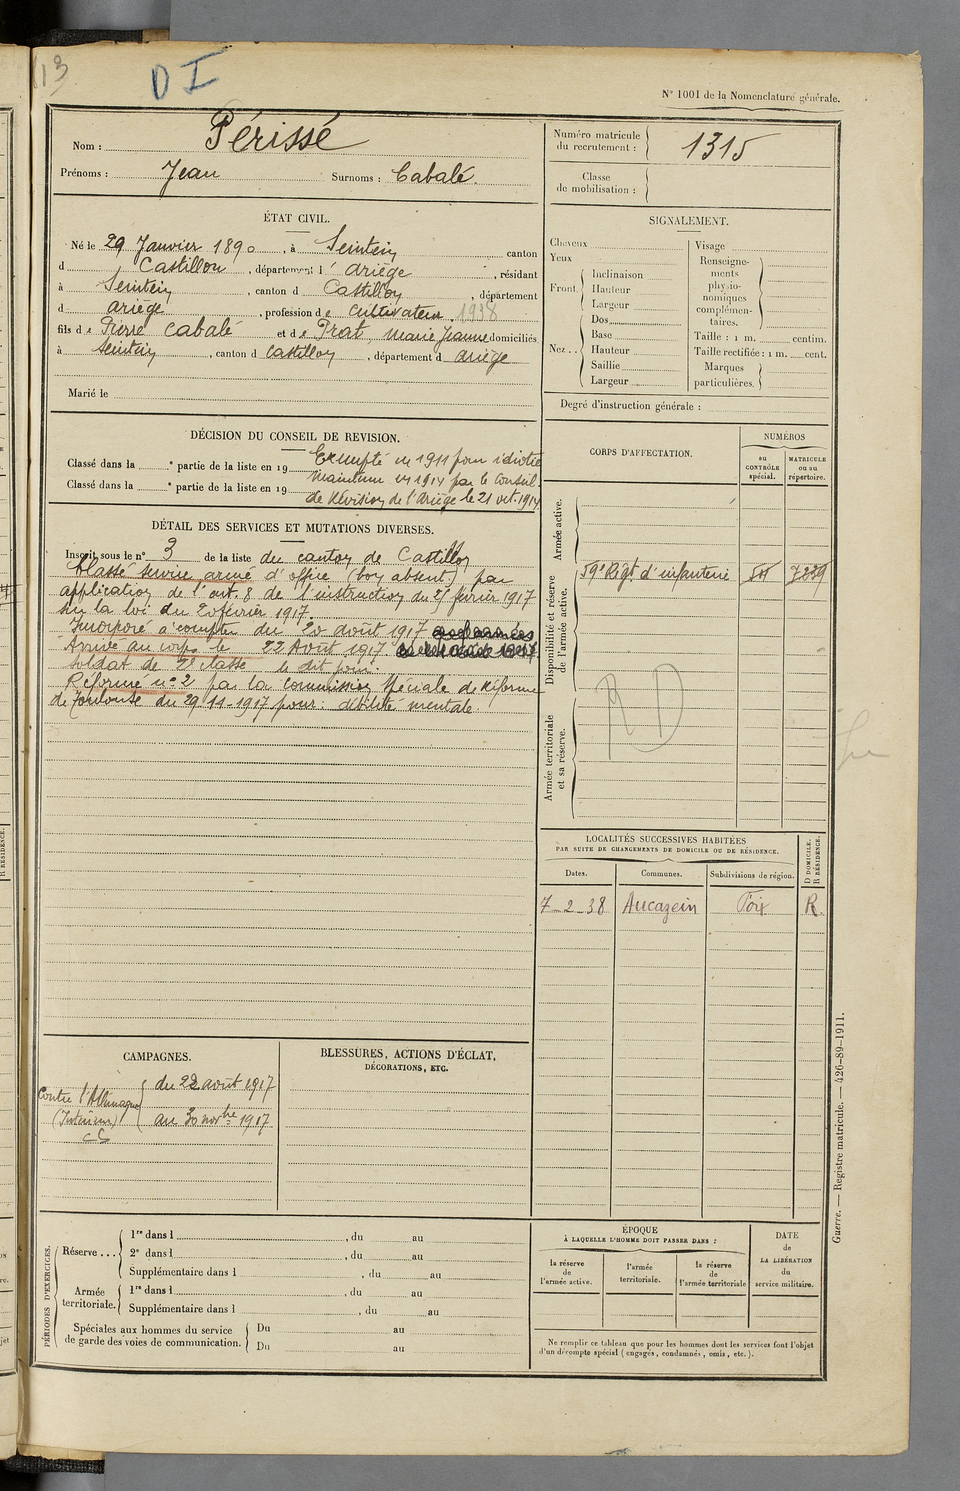 13
D I
N° 1001 de la Nomenclature générale.
Nom : Périssé
Prénoms : Jean Surnoms : Cabalé.
Numéro matricule du recrutement : 1315
Classe de mobilisation :
ÉTAT CIVIL.
Né le 29 Janvier 1890, à Sentein canton
d Castillon, département d ariège, résidant
à Sentein, canton d Castillon, département
d ariège, profession de Cultivateur. 1938
fils de Pierre Cabalé et de Prat, Marie Jeanne domiciliés
à Sentein, canton d Castillon, département d ariège
Marié le
SIGNALEMENT.
Cheveux
Yeux
Front. Inclinaison
Hauteur
Largeur
Nez .. Dos
Base
Hauteur
Saillie
Largeur
Visage
Renseignements physionomiques complémentaires.
Taille : 1 m. centim.
Taille rectifiée : 1 m. cent.
Marques particulières.
Degré d'instruction générale :
DÉCISION DU CONSEIL DE REVISION.
Classé dans la ° partie de la liste en 19 Exempté en 1911 pour idiotie
Classé dans la ° partie de la liste en 19 Maintenu en 1914 par le Conseil
de Révision de l'Ariège le 21 oct. 1914
DÉTAIL DES SERVICES ET MUTATIONS DIVERSES.
Inscrit sous le n° 3 de la liste du canton de Castillon
Classé service armé d'office (bon absent) par
application de l'art. 8 de l'instruction du 21 février 1917
sur la loi du 20 février 1917.
Incorporé à compter du 20 août 1917
Arrivé au corps le 22 Août 1917
soldat de 2e classe le dit jour.
Réformé n° 2 par la Commission Spéciale de Réforme
de Toulouse du 29-11-1917 pour : débilité mentale.
CORPS D'AFFECTATION.
NUMÉROS
au CONTRÔLE spécial.
MATRICULE ou au répertoire.
Armée active.
Disponibilité et réserve de l'armée active.
59e Régt d'infanterie 7229
R D
Armée territoriale et sa réserve.
LOCALITÉS SUCCESSIVES HABITÉES
PAR SUITE DE CHANGEMENTS DE DOMICILE OU DE RÉSIDENCE.
Dates. Communes. Subdivisions de région. D DOMICILE. R RÉSIDENCE.
7_2_38 Aucazein Foix R.
CAMPAGNES.
Contre l'Allemagne
(Intérieur)
CC
du 22 août 1917
au 30 novbre 1917
BLESSURES, ACTIONS D'ÉCLAT,
DÉCORATIONS, ETC.
PÉRIODES D'EXERCICES.
Réserve ... 1re dans l , du au
2e dans l , du au
Supplémentaire dans l , du au
Armée territoriale. 1re dans l , du au
Supplémentaire dans l , du au
Spéciales aux hommes du service de garde des voies de communication. Du au
Du au
ÉPOQUE
À LAQUELLE L'HOMME DOIT PASSER DANS :
la réserve de l'armée active.
l'armée territoriale.
la réserve de l'armée territoriale
DATE de LA LIBÉRATION du service militaire.
Ne remplir ce tableau que pour les hommes dont les services font l'objet
d'un décompte spécial (engagés, condamnés, omis, etc.).
Guerre. — Registre matricule. — 426-89-1911.